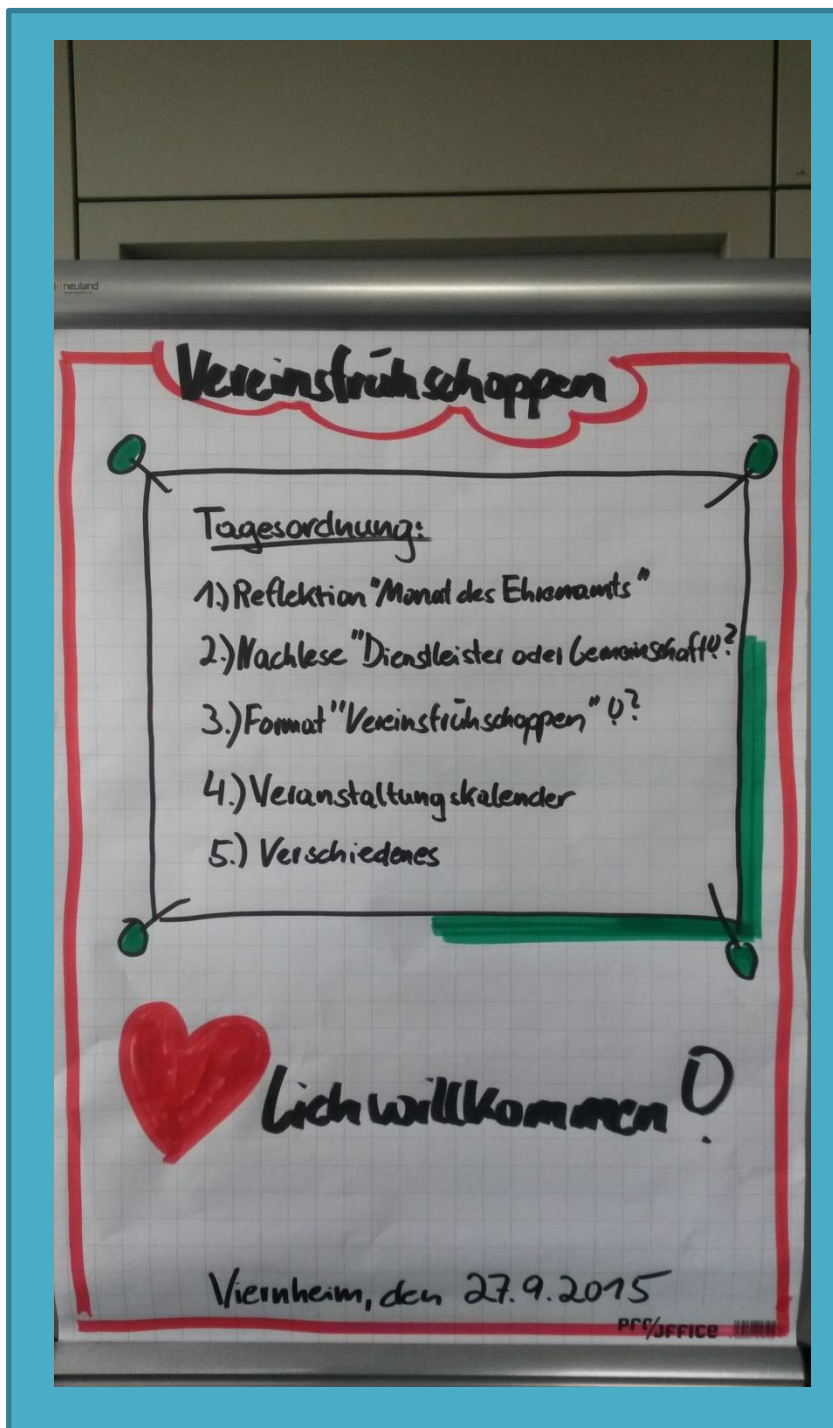 neuland
Vereinsfrühschoppen
Tagesordnung:
1.) Reflektion "Monat des Ehrenamts"
2.) Nachlese "Dienstleister oder Gemeinschaft!?
3.) Format "Vereinsfrühschoppen" !?
4.) Veranstaltungskalender
5.) Verschiedenes
lich willkommen!
Viernheim, den 27.9.2015
PRO/OFFICE